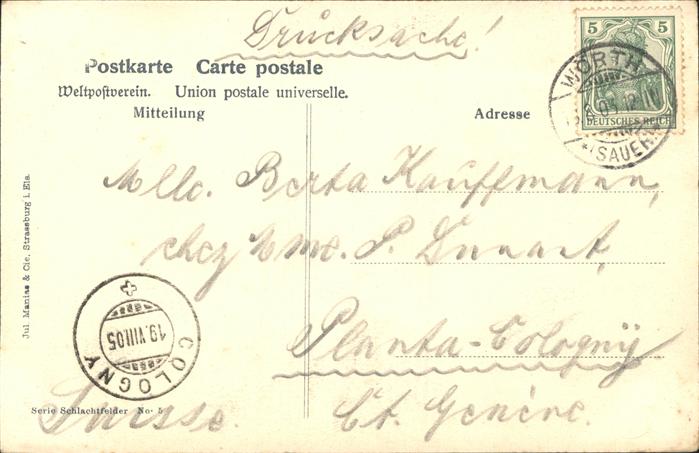 Drucksache!
5 5
DEUTSCHES REICH
WÖRTH
(SAUER)
Postkarte Carte postale
Weltpostverein. Union postale universelle.
Mitteilung Adresse
Mlle. Berta Kauffmann,
chez Mme. P. Dunant,
Planta-Cologny
Ct. Genève.
Suisse.
COLOGNY
19.VIII.05
Serie Schlachtfelder No. 5
Jul Manias & Cie, Strassburg i. Els.